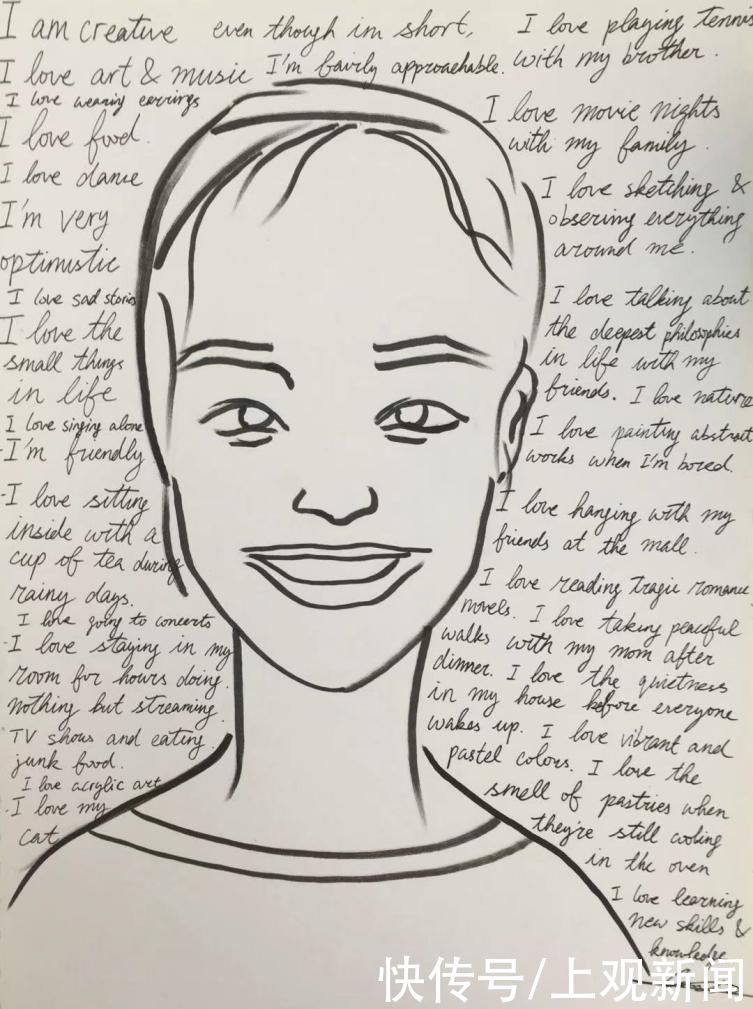 I am creative
I love art & music
I love wearing earrings
I love food.
I love dance
I'm very
optimistic
I love sad stories
I love the
small things
in life
I love singing alone
-I'm friendly
-I love sitting
inside with a
cup of tea during
rainy days.
I love going to concerts
-I love staying in my
room for hours doing.
nothing but streaming.
TV shows and eating.
junk food.
I love acrylic art
-I love my
cat
even though im short,
I'm fairly approachable.
I love playing tennis
with my brother.
I love movie nights
with my family.
I love sketching &
observing everything
around me.
I love talking about
the deepest philosophies
in life with my
friends. I love nature
I love painting abstract
works when I'm bored.
I love hanging with my
friends at the mall.
I love reading tragic romance
novels. I love taking peaceful
walks with my mom after
dinner. I love the quietness
in my house before everyone
wakes up. I love vibrant and
pastel colors. I love the
smell of pastries when
they're still cooling
in the oven
I love learning
new skills &
knowledge
快传号/上观新闻